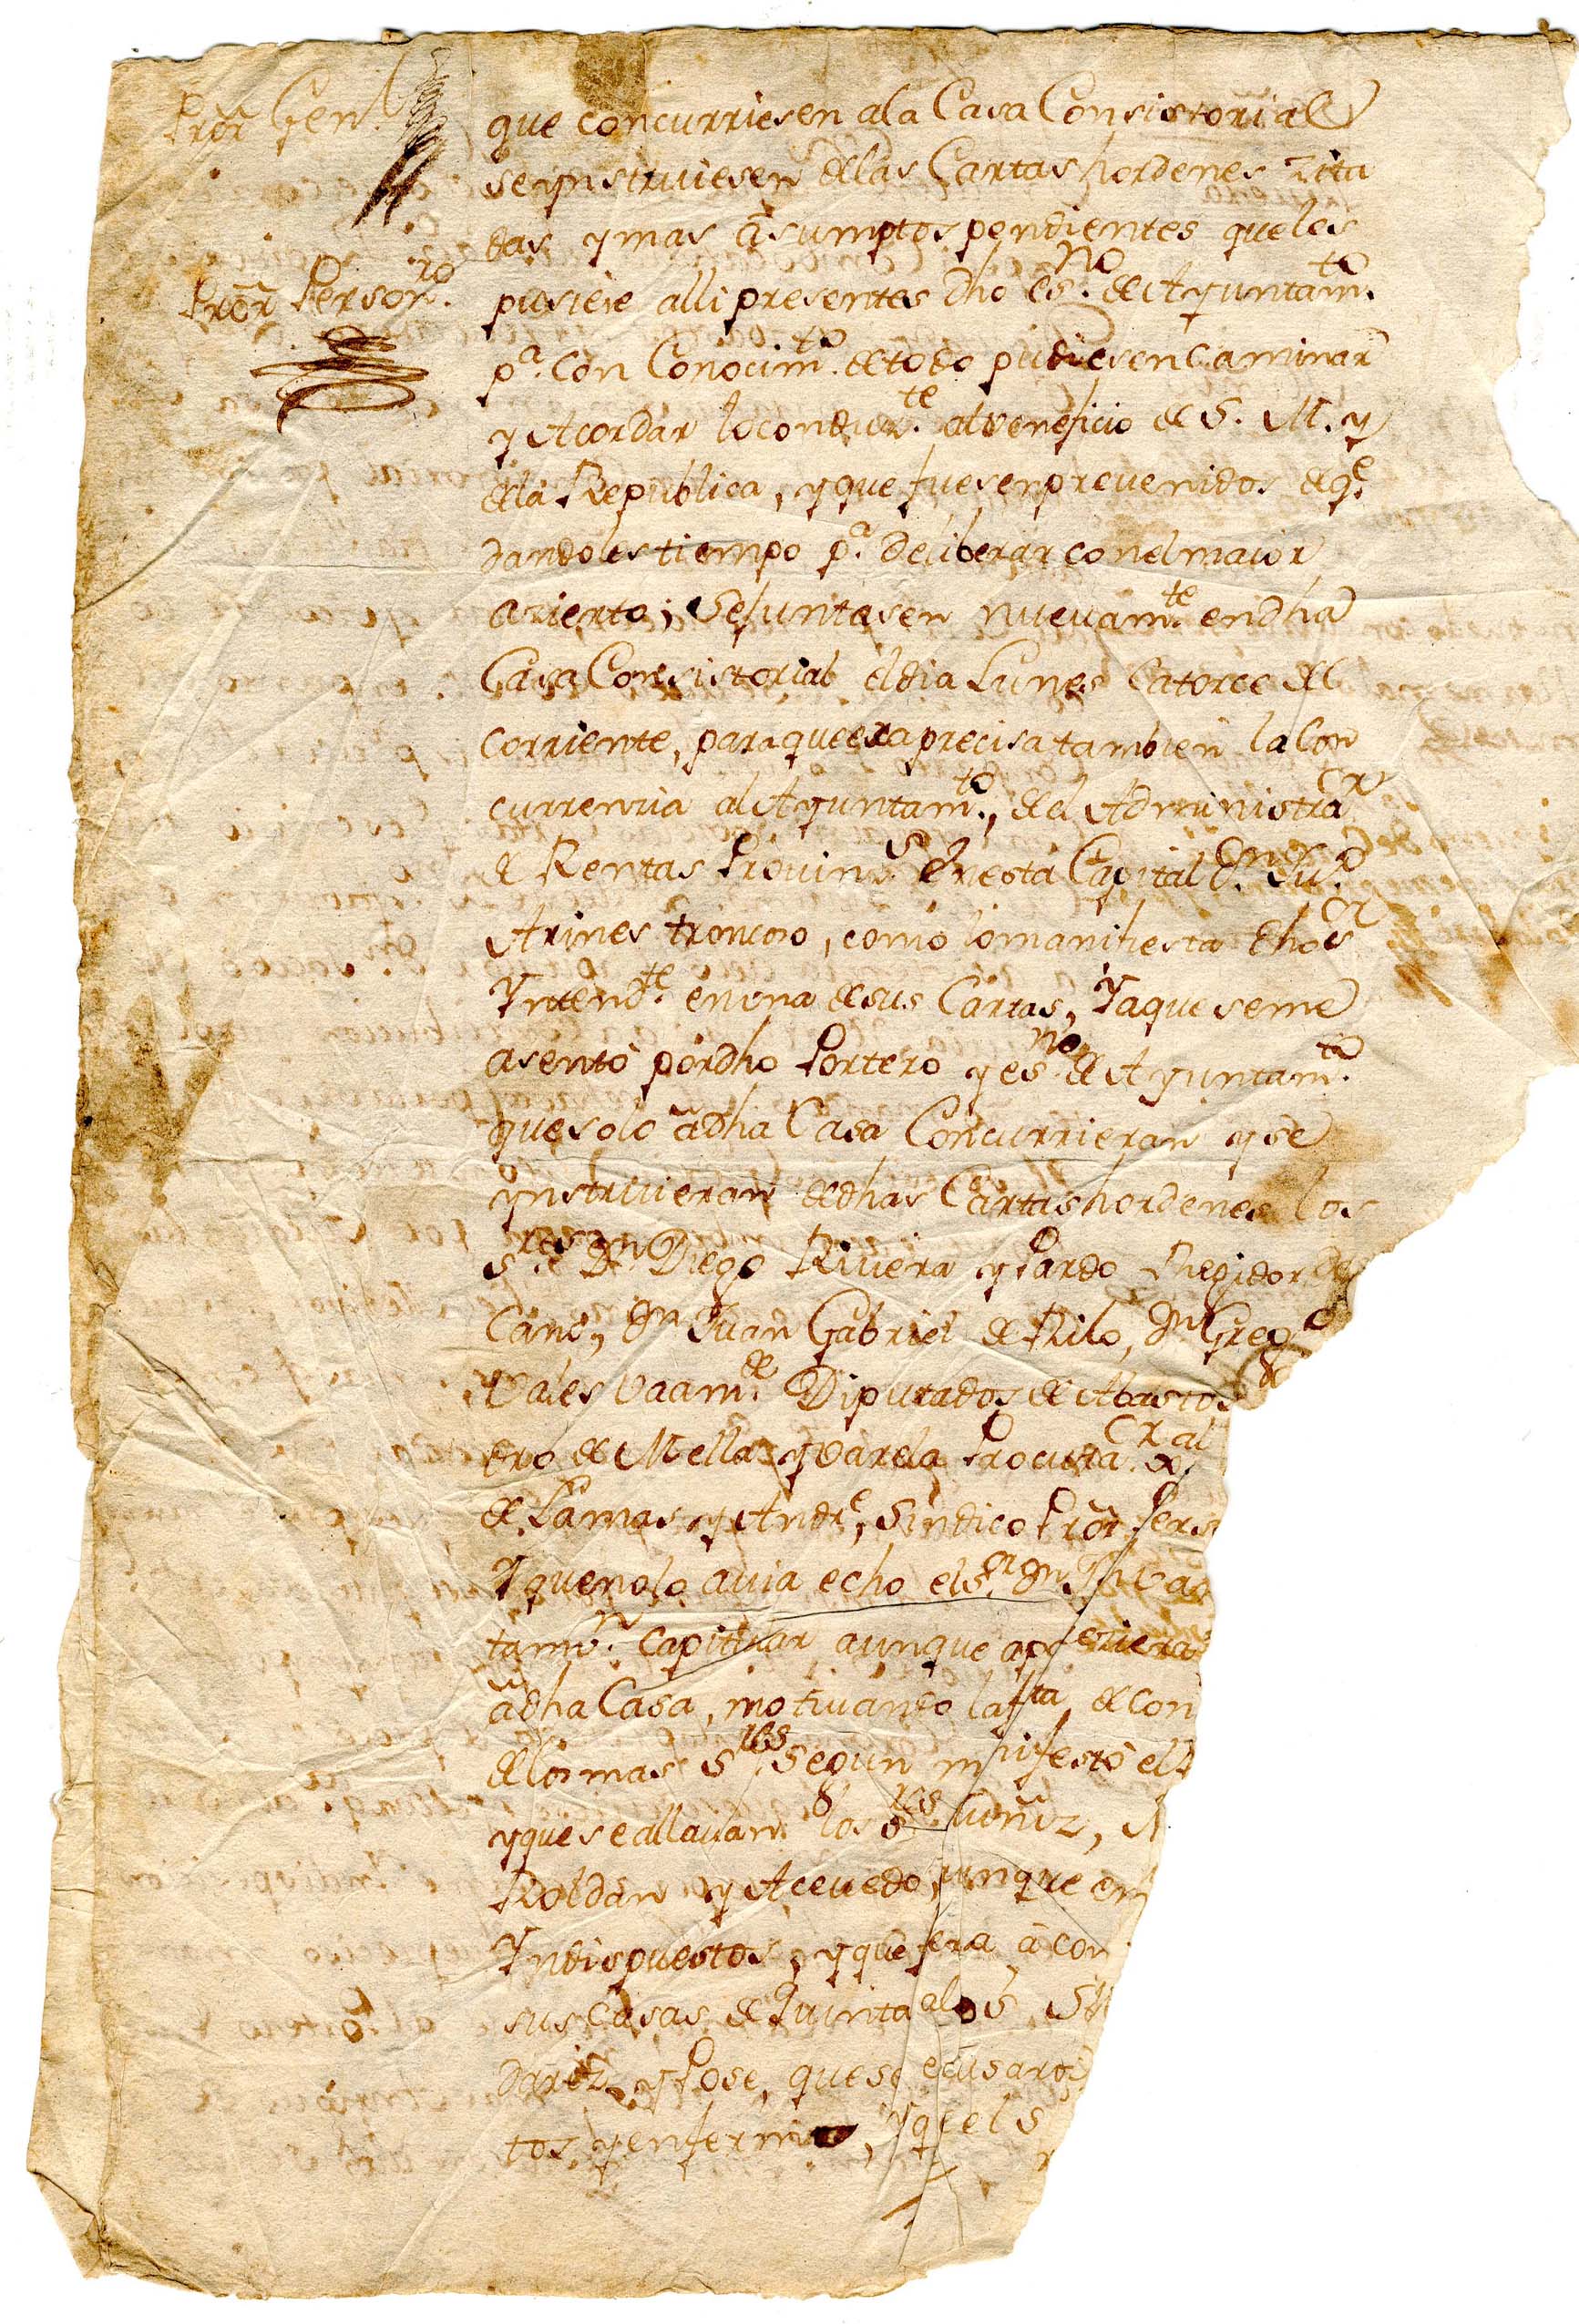 Prõr Gen.l
Prõr Person.ro
que concurriesen ala Casa Consistorial
se ynstruiesen de las Cartas hordenes zita
das y mas asumptos pendientes que les
pusiese alli presentes dho es.no de Ayuntam.to
p.a con Conocim.to de todo pudiesen Caminar
y Acordar lo conduz.te al veneficio de S. M. y
de la Republica, y que fuesen prevenidos de q.e
dandoles tiempo p.a deliberar con el maior
azierto; se juntasen nuevam.te en dha
Casa Consistorial el dia Lunes Catorce del
corriente, para que era precisa tambien la Con
currenzia al Ayuntam.to, del Administra.or
de Rentas Provin.s en esta Capital d.n Ju.o
Arines troncoso, como lo manifiesta dho s.or
Yntend.te en una de sus Cartas, Y a que se me
asentò por dho Portero y es.no de Ayuntam.to
que solo a dha Casa Concurrieran y se
ynstruieran de dhas Cartas hordenes los
s.res D.n Diego Rivera y Pardo Rexidor de
Cano, d.n Juan Gabriel de Rilo, d.n Greg.o
Vales Vaam.de Diputados de Abastos
dro de Mella y Varela Procura.or
de Lamas y Andr.e, Sindico Prõr Pers
Y que no lo avia echo el s.or d.n
tam.n Capitular aunque
a dha Casa, motivando la de con
de los mas s.res segun el
y que se allavan los s.res
Roldan y Acevedo, en
Yndispuestos, y que era à con
sus Casas de Quinta a los S
dariz y Pose, que se
tos y enfermo, Y q.e el s